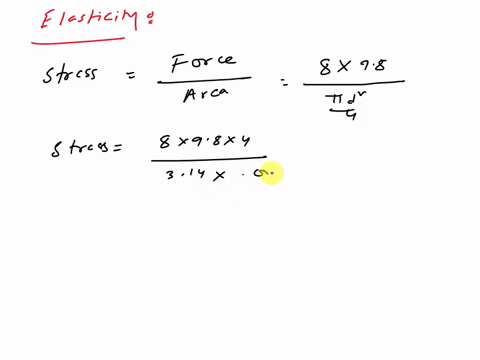 Elasticity:
Stress = Force / Area = 8 × 9.8 / πd²/4
Stress = 8 × 9.8 × 4 / 3.14 × .0